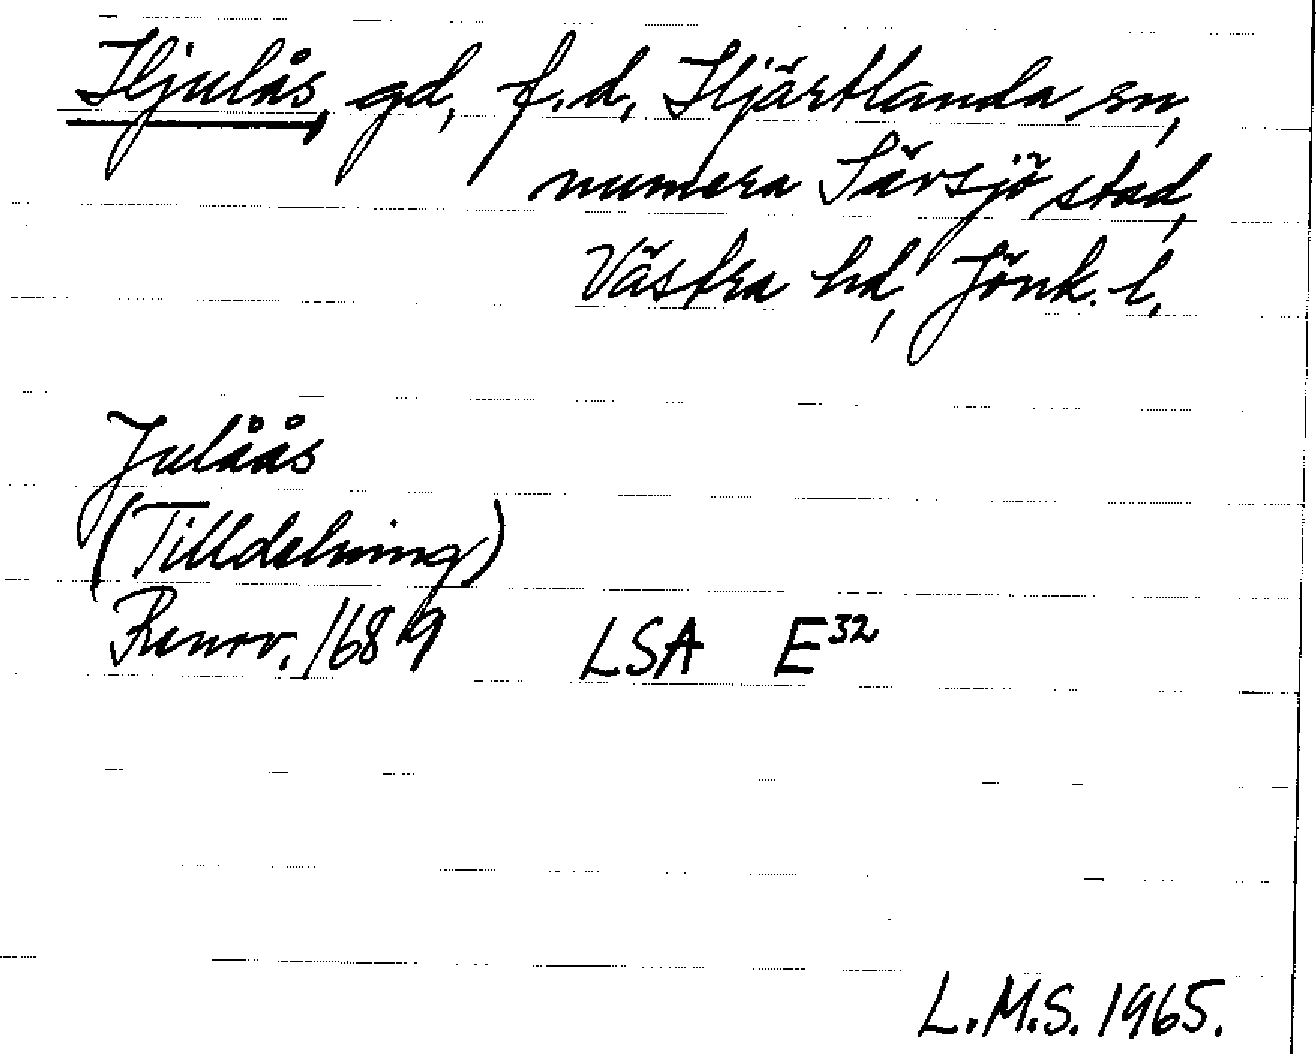 Hjulås, gd, f.d. Hjärtlanda sn,
numera Sävsjö stad,
Västra hd, Jönk. l.
Julåås
(Tilldelning)
Renov. 1689 LSA E32
L.M.S. 1965.